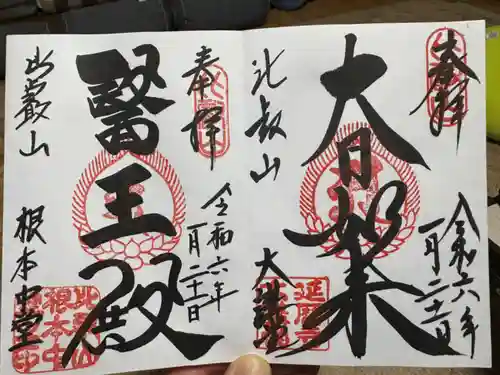 奉拝
令和六年
一月二十一日
大日如来
比叡山
大講堂
延暦寺
奉拝
令和六年
一月二十一日
醫王殿
比叡山
根本中堂
比叡山
根本中